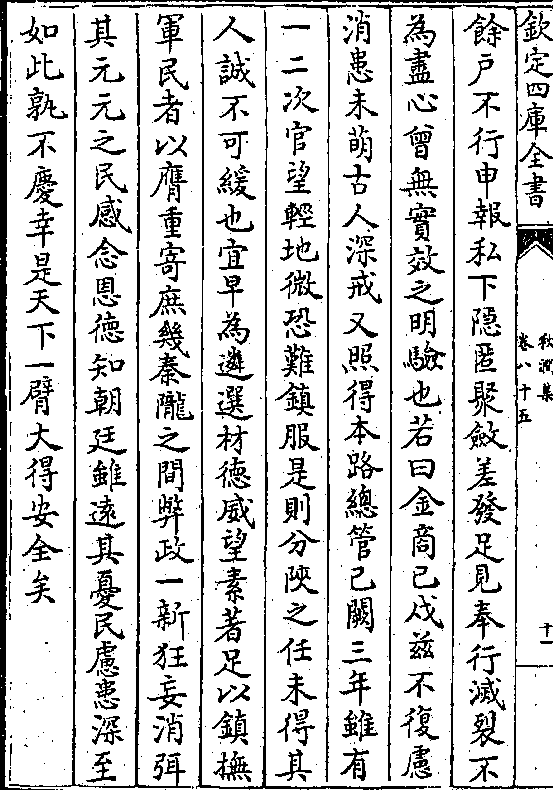 欽定四庫全書
秋澗集
卷八十五
十一
餘戸不行申報私下隠匿聚斂差發足見奉行滅裂不
為盡心曾無實效之明驗也若曰金商已戍兹不復慮
消患未萌古人深戒又照得本路總管已闕三年雖有
一二次官望輕地微恐難鎮服是則分陜之任未得其
人誠不可緩也宜早為遴選材德威望素著足以鎮撫
軍民者以膺重寄庶幾秦隴之間弊政一新狂妄消弭
其元元之民感念恩徳知朝廷雖遠其憂民慮患深至
如此孰不慶幸是天下一臂大得安全矣